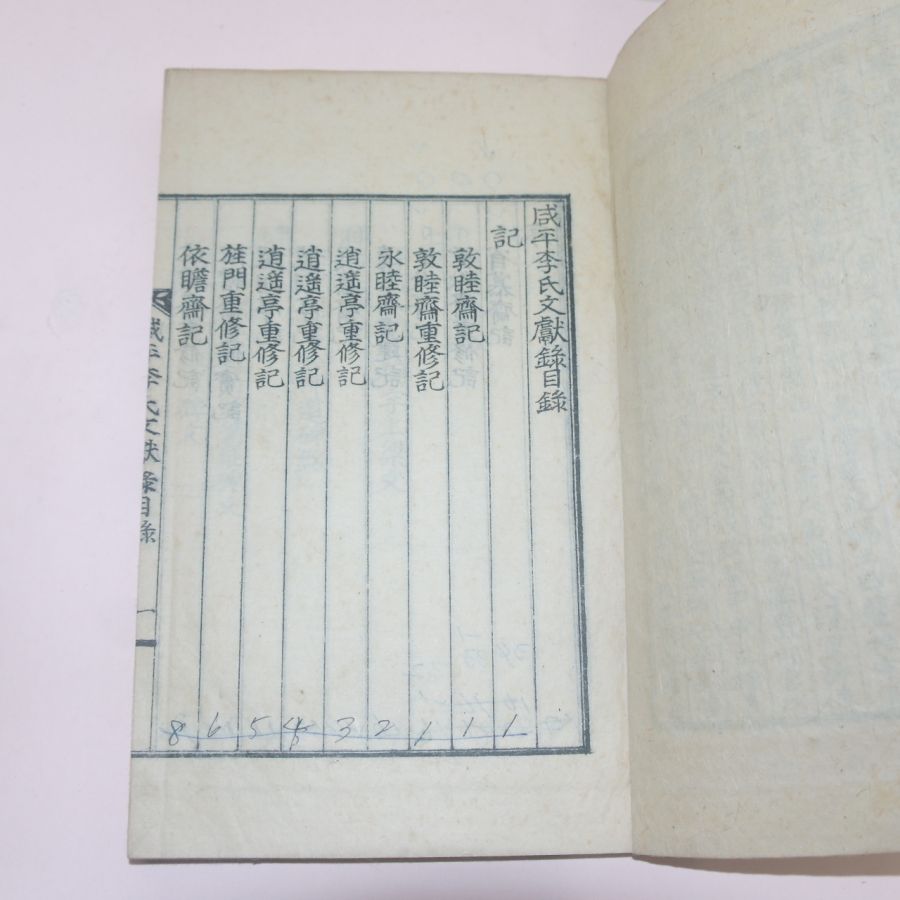 咸平李氏文獻錄目錄
記
敦睦齋記
敦睦齋重修記
永睦齋記
逍遥亭重修記
逍遥亭重修記
逍遥亭重修記
旌門重修記
依瞻齋記
咸平李氏文獻錄目錄
一
1 1 1 2 3 4 5 6 8